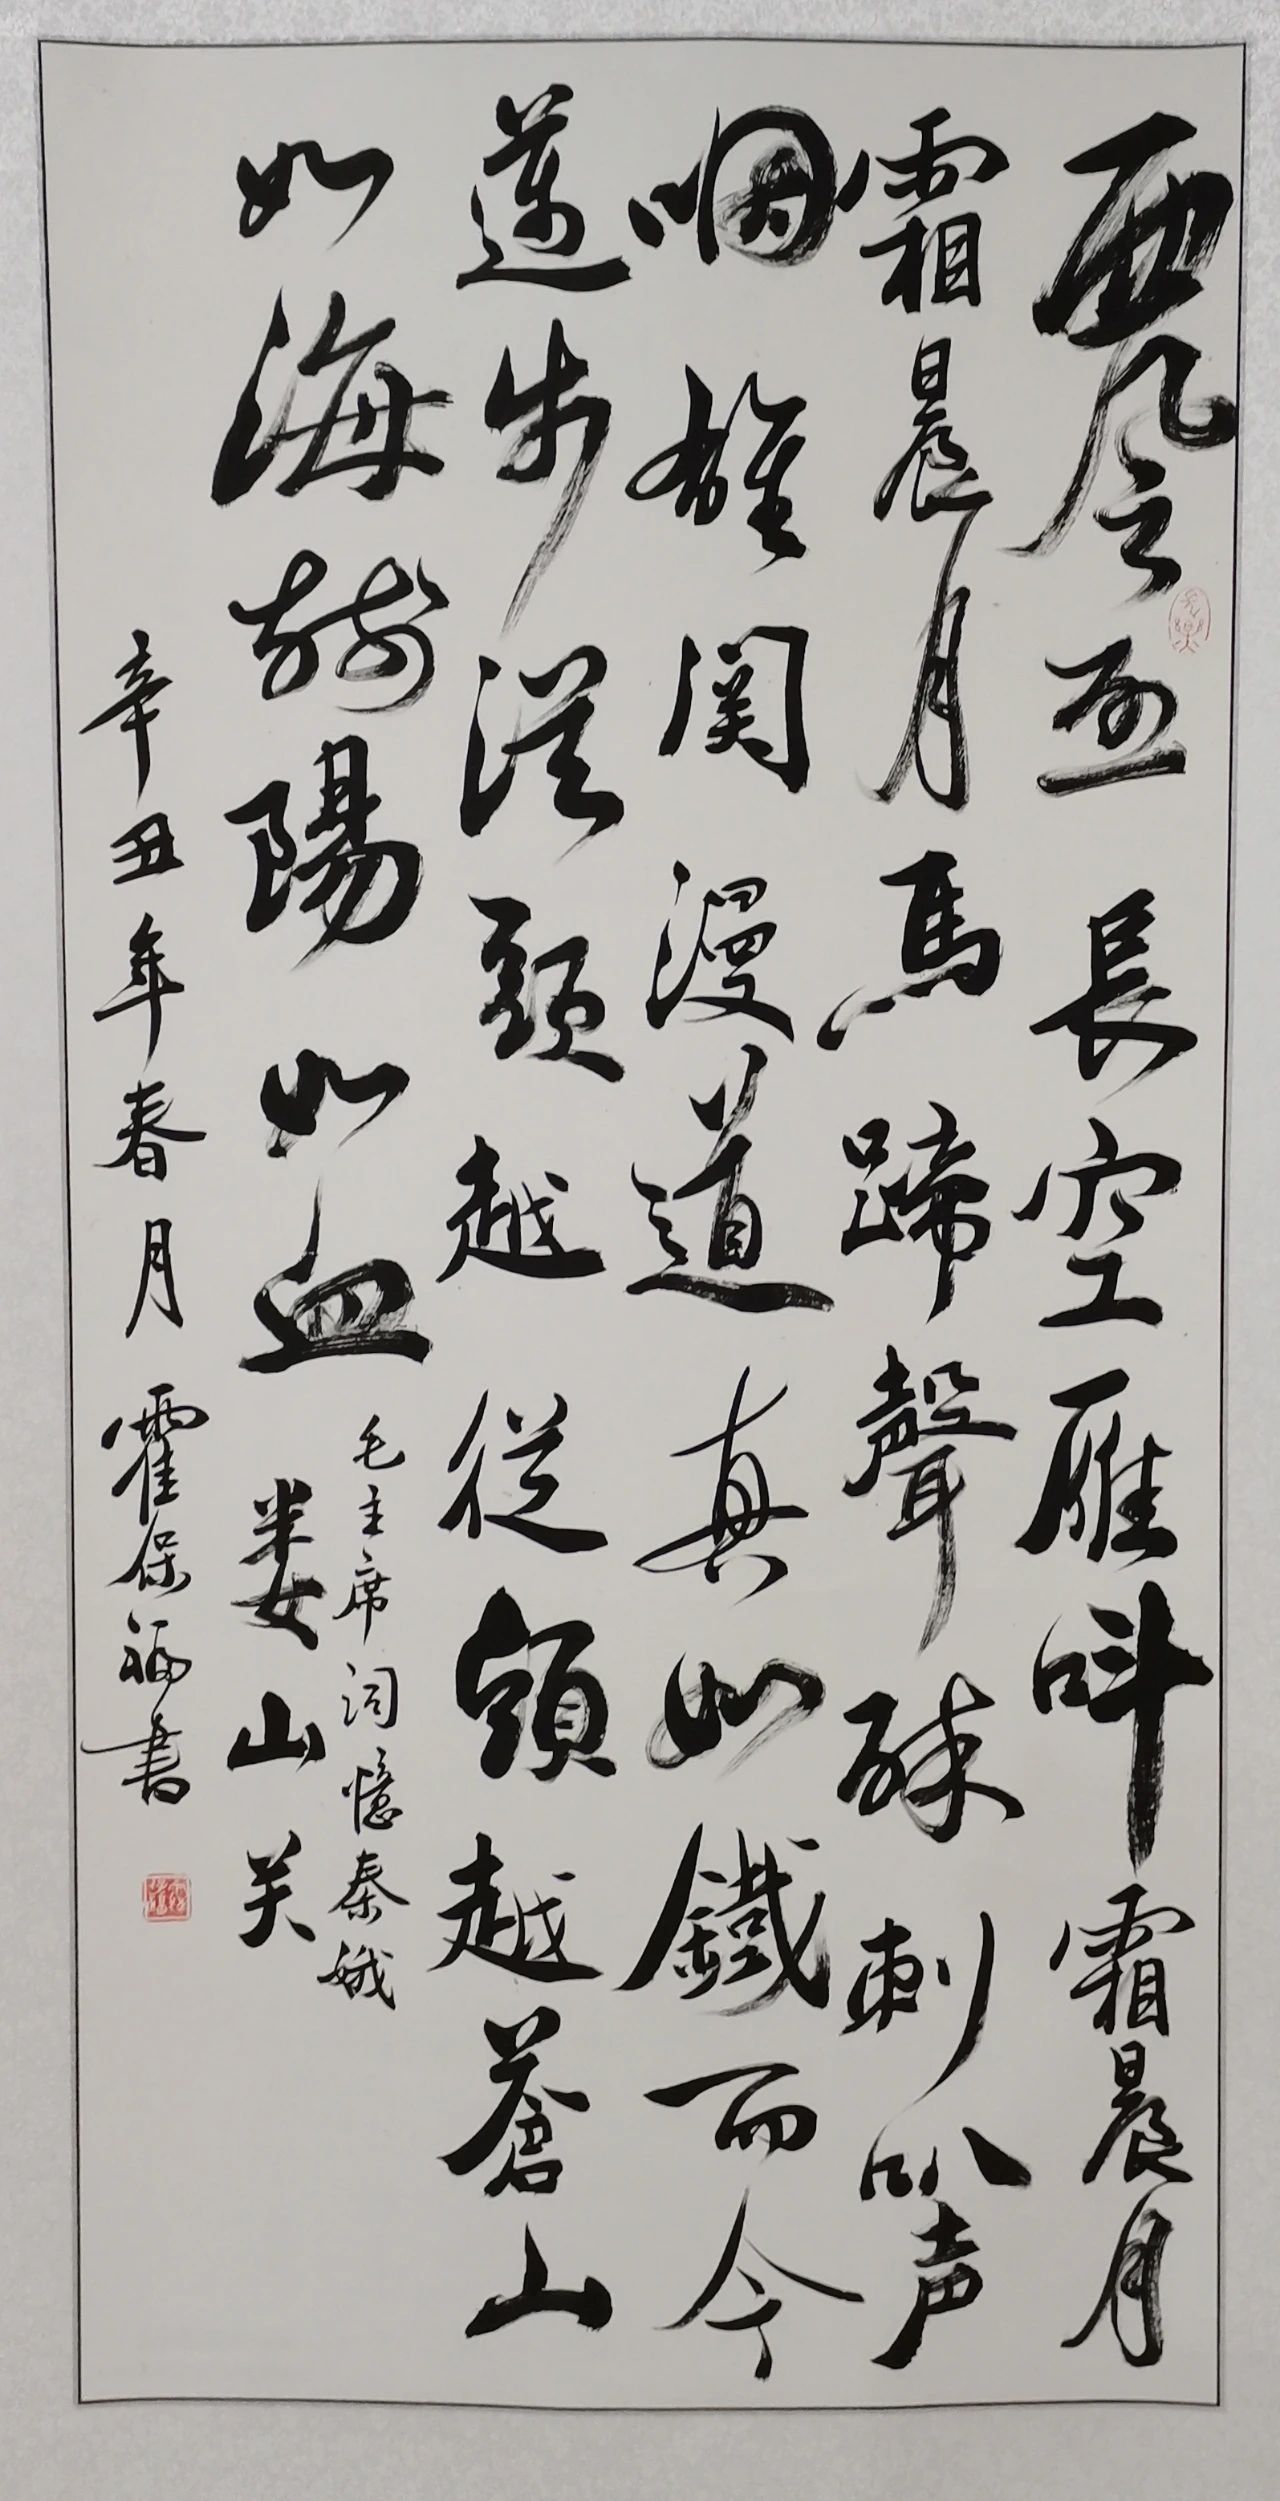 西风烈長空雁叫霜晨月
霜晨月馬蹄聲碎喇叭声
咽雄関漫道真如鐵而今
邁步從頭越從頭越蒼山
如海殘陽如血
毛主席词憶秦娥
娄山关
辛丑年春月霍保福書